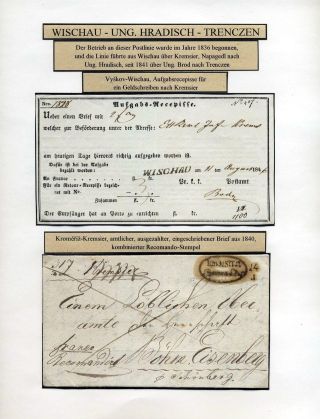 WISCHAU - UNG. HRADISCH - TRENCZEN
Der Betrieb an dieser Postlinie wurde im Jahre 1836 begonnen,
und die Linie führte aus Wischau über Kremsier, Napagedl nach
Ung. Hradisch, seit 1841 über Ung. Brod nach Trenczen
Vyškov-Wischau, Aufgabsrecepisse für
ein Geldschreiben nach Kremsier
Nro.
Aufgabs-Recepisse.
Ueber einen Brief mit
welcher zur Beförderung unter der Adresse:
am heutigen Tage hierorts richtig aufgegeben worden ist.
Dafür ist bei der Aufgabe
bezahlt worden:
WISCHAU
An Franco
Für ein Retour-Recepisse
Zusammen
Postamt
Der Empfänger hat an Porto zu entrichten
Kroměříž-Kremsier, amtlicher, ausgezahlter, eingeschriebener Brief aus 1840,
kombinierter Recomando-Stempel
Einem Löblichen Ober
amte der Herrschaft
franco
Recomandirt
Böhm. Eisenberg